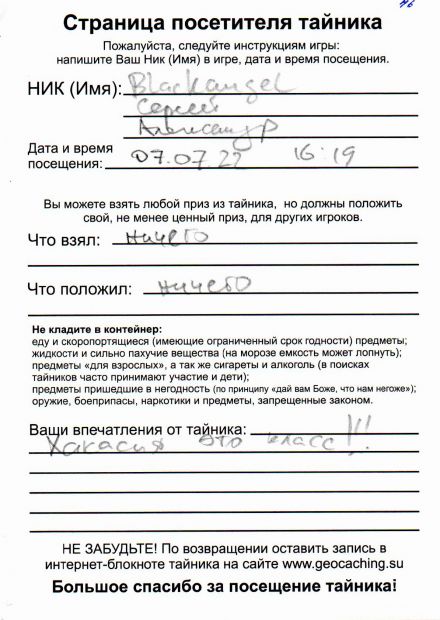 Страница посетителя тайника
Пожалуйста, следуйте инструкциям игры:
напишите Ваш Ник (Имя) в игре, дата и время посещения.
НИК (Имя): Blackangel
Сергей
Александр
Дата и время
посещения: 07.07.22 16:19
Вы можете взять любой приз из тайника, но должны положить
свой, не менее ценный приз, для других игроков.
Что взял: ничего
Что положил: ничего
Не кладите в контейнер:
еду и скоропортящиеся (имеющие ограниченный срок годности) предметы;
жидкости и сильно пахучие вещества (на морозе емкость может лопнуть);
предметы «для взрослых», а так же сигареты и алкоголь (в поисках
тайников часто принимают участие и дети);
предметы пришедшие в негодность (по принципу «дай вам Боже, что нам негоже»);
оружие, боеприпасы, наркотики и предметы, запрещенные законом.
Ваши впечатления от тайника:
Хакасия это класс!!!
НЕ ЗАБУДЬТЕ! По возвращении оставить запись в
интернет-блокноте тайника на сайте www.geocaching.su
Большое спасибо за посещение тайника!